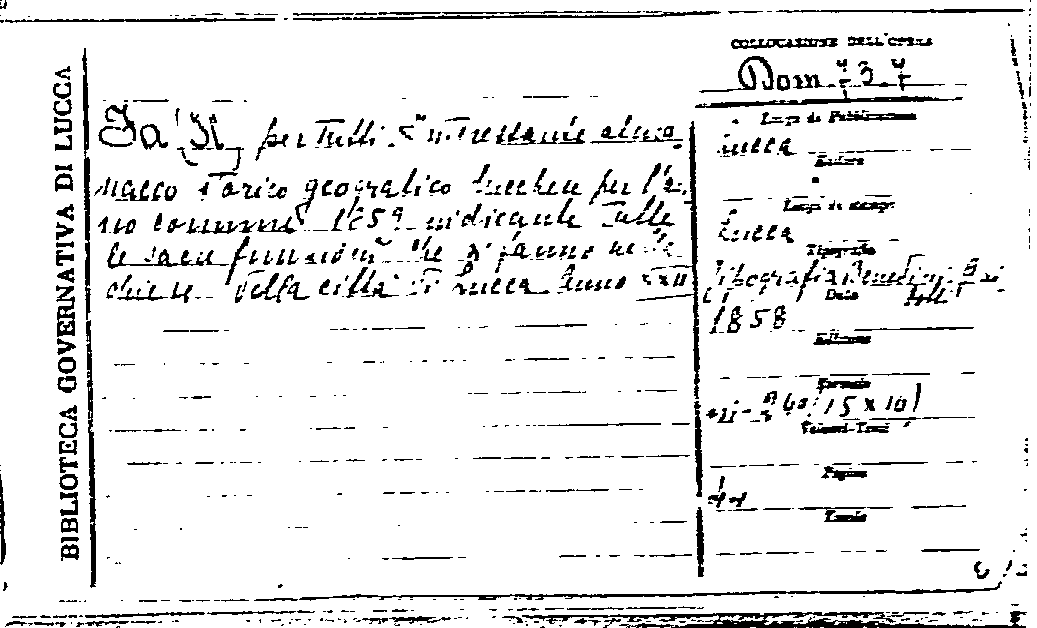 BIBLIOTECA GOVERNATIVA DI LUCCA
Fa per tutti. Interessante alma-
nacco storico geografico lucchese per l'an-
no comune 1859 indicante tutte
le sacre funzioni che si fanno nelle
chiese della città di Lucca Anno XXII
COLLOCAZIONE DELL'OPERA
Dom
Luogo di Pubblicazione
Lucca
Editore
Luogo di stampa
Lucca
Tipografia
Tipografia Benedini
Data
1858
Edizione
Formato
(15 x 10)
Volumi-Tomi
Pagine
Tavole